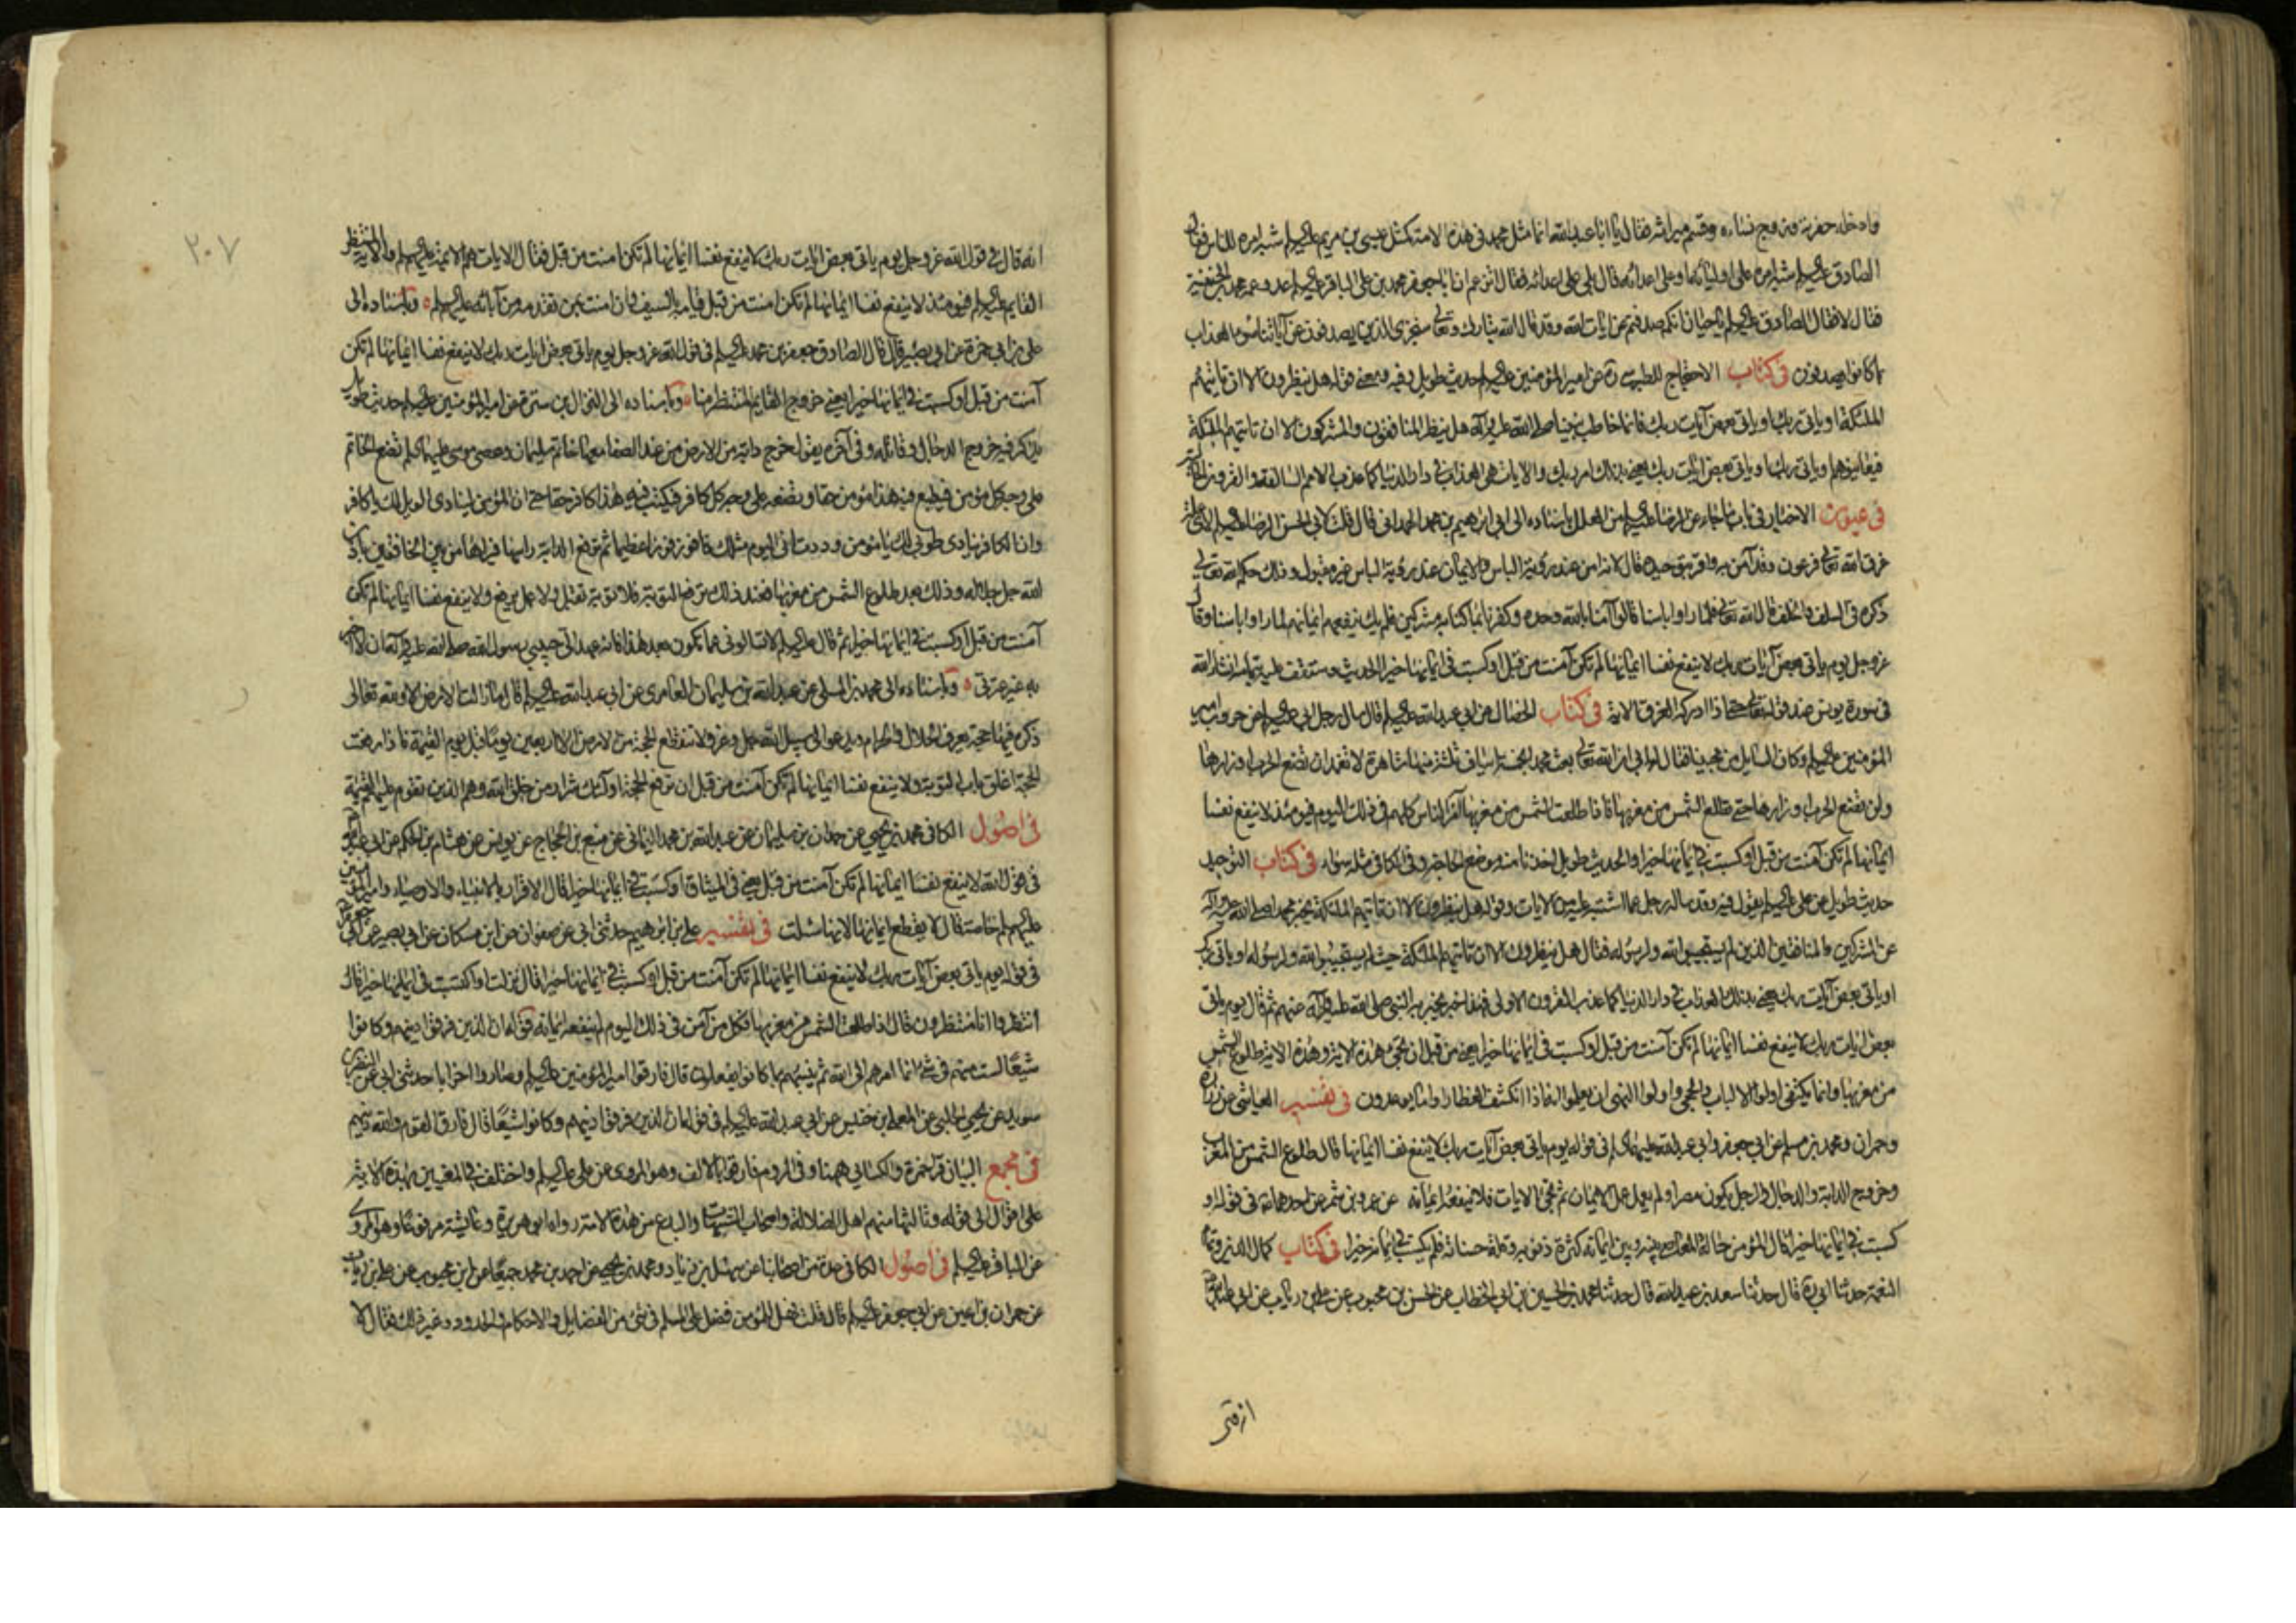 وادخله حفرته وتزوج نساءه وقسم ميراثه فقال يا ابا عبدالله انما مثل محمد في هذه الامة كمثل عيسى بن مريم عليه السلم شبه امره للناس فقال
الصادق عليه السلم شبه امره على اوليائه او على اعدائه قال بلى على اعدائه فقال اتزعم ان ابا جعفر محمد بن على الباقر عليه السلم عدو عمه محمد بن الحنفية
فقال لا فقال الصادق عليه السلم يا حيان انكم صدفتم عن ايات الله وقد قال الله تبارك وتعالى سنجزى الذين يصدفون عن آياتنا سوء العذاب
بما كانوا يصدفون في كتاب الاحتجاج للطبرسي ره عن امير المؤمنين عليه السلم حديث طويل وفيه ومعنى قوله هل ينظرون الا ان تأتيهم
الملئكة او ياتى ربك او ياتى بعض آيات ربك فانما خاطب نبينا صلى الله عليه وآله هل ينظر المنافقون والمشركون الا ان تاتيهم الملئكة
فيعاينوهم او ياتى ربك او ياتى بعض ايات ربك يعنى بذلك امر ربك والايات هى العذاب في دار الدنيا كما عذب الامم السالفة والقرون الخالية
في عيون الاخبار في باب ما جاء عن الرضا عليه السلم من العلل باسناده الى ابراهيم بن محمد الهمدانى قال قلت لابى الحسن الرضا عليه السلم لاى علة
غرق الله تعالى فرعون وقد آمن به واقر بتوحيده قال لانه امن عند رؤية الباس والايمان عند رؤية الباس غير مقبول وذلك حكم الله تعالى
ذكره في السلف والخلف قال الله تعالى فلما راوا باسنا قالوا آمنا بالله وحده وكفرنا بما كنا به مشركين فلم يك ينفعهم ايمانهم لما راوا باسنا وقال
عزوجل يوم ياتى بعض آيات ربك لا ينفع نفسا ايمانها لم تكن آمنت من قبل او كسبت في ايمانها خيرا الحديث وستقف عليه بتمامه انشاء الله
في سورة يونس عند قوله تعالى حتى اذا ادركه الغرق الاية في كتاب الخصال عن ابى عبدالله عليه السلم قال سال رجل ابى عليه السلم عن حروب امير
المؤمنين عليه السلم وكان السايل من محبينا فقال له ابى ان الله تعالى بعث محمدا بخمسة اسياف ثلثة منها شاهرة لا تغمد الا ان تضع الحرب اوزارها
ولن تضع الحرب اوزارها حتى تطلع الشمس من مغربها فاذا طلعت الشمس من مغربها آمن الناس كلهم في ذلك اليوم فيومئذ لا ينفع نفسا
ايمانها لم تكن آمنت من قبل او كسبت في ايمانها خيرا والحديث طويل اخذنا منه موضع الحاجة وفي الكافي مثله سواء في كتاب التوحيد
حديث طويل عن على عليه السلم يقول فيه وقد ساله رجل عما اشتبه عليه من الايات وقوله هل ينظرون الا ان تاتيهم الملئكة يخبر محمدا صلى الله عليه وآله
عن المشركين والمنافقين الذين لم يستجيبوا لله ولرسوله فقال هل ينظرون الا ان تاتيهم الملئكة حيث لم يستجيبوا لله ولرسوله او ياتى ربك
او ياتى بعض آيات ربك يعنى بذلك العذاب في دار الدنيا كما عذب القرون الاولى فهذا خبر يخبر به النبى صلى الله عليه وآله عنهم ثم قال يوم ياتى
بعض ايات ربك لا ينفع نفسا ايمانها لم تكن آمنت من قبل او كسبت في ايمانها خيرا يعنى من قبل ان تجئ هذه الاية وهذه الاية طلوع الشمس
من مغربها وانما يكتفى اولوا الالباب والحجى واولوا النهى ان يعلموا انه اذا انكشف الغطا راوا ما يوعدون في تفسير العياشى عن زرارة
وحمران ومحمد بن مسلم عن ابى جعفر وابى عبدالله عليهما السلم في قوله يوم ياتى بعض آيات ربك لا ينفع نفسا ايمانها قال طلوع الشمس من المغرب
وخروج الدابة والدجال والرجل يكون مصرا ولم يعمل عمل الايمان ثم تجئ الايات فلا ينفعه ايمانه عن عمرو بن شمر عن احدهما عه في قوله او
كسبت في ايمانها خيرا قال المؤمن حالت المعاصى بينه وبين ايمانه كثرة ذنوبه وقلة حسناته فلم يكسب في ايمانه خيرا في كتاب كمال الدين وتمام
النعمة حدثنا ابى ره قال حدثنا سعد بن عبدالله قال حدثنا محمد بن الحسين بن ابى الخطاب عن الحسن بن محبوب عن على بن رئاب عن ابى عبدالله
٢٠٧
انه قال في قول الله عزوجل يوم ياتى بعض ايات ربك لا ينفع نفسا ايمانها لم تكن امنت من قبل فقال الايات هم الائمة عليهم السلم والاية المنتظر
القايم عليه السلم فيومئذ لا ينفع نفسا ايمانها لم تكن امنت من قبل قيامه بالسيف وان امنت بمن تقدمه من آبائه عليهم السلم وباسناده الى
على بن ابى حمزة عن ابى بصير قال قال الصادق جعفر بن محمد عليه السلم في قول الله عزوجل يوم ياتى بعض ايات ربك لا ينفع نفسا ايمانها لم تكن
آمنت من قبل او كسبت في ايمانها خيرا يعنى خروج القايم المنتظر منا وباسناده الى النزال بن سبرة عن امير المؤمنين عليه السلم حديث طويل
يذكر فيه خروج الدجال وقاتله وفي آخره يقول خروج دابة من الارض من عند الصفا معها خاتم سليمان وعصى موسى عليهما السلم تضع الخاتم
على وجه كل مؤمن فيطبع فيه هذا مؤمن حقا وتضعه على وجه كل كافر فيكتب فيه هذا كافر حقا حتى ان المؤمن لينادى الويل لك يا كافر
وان الكافر ينادى طوبى لك يا مؤمن وددت انى اليوم مثلك فافوز فوزا عظيما ثم ترفع الدابة راسها فيراها من بين الخافقين باذن
الله جل جلاله وذلك بعد طلوع الشمس من مغربها فعند ذلك ترفع التوبة فلا توبة تقبل ولا عمل يرفع ولا ينفع نفسا ايمانها لم تكن
آمنت من قبل او كسبت في ايمانها خيرا ثم قال عليه السلم لا تسالونى عما يكون بعد هذا فانه عهد الى حبيبى رسول الله صلى الله عليه وآله ان لا اخبر
به غير عترتى وباسناده الى محمد بن المسلى عن عبدالله بن سليمان العامرى عن ابى عبدالله عليه السلم قال ما زالت الارض الا ولله تعالى
ذكره فيها حجة يعرف الحلال والحرام ويدعو الى سبيل الله جل وعز ولا تنقطع الحجة من الارض الا اربعين يوما قبل يوم القيمة فاذا رفعت
الحجة اغلق باب التوبة ولا ينفع نفسا ايمانها لم تكن آمنت من قبل ان ترفع الحجة اولئك شرار من خلق الله وهم الذين تقوم عليهم القيمة
في اصول الكافى محمد بن يحيى عن حمدان بن سليمان عن عبدالله بن محمد اليمانى عن منيع بن الحجاج عن يونس عن هشام بن الحكم عن ابى عبدالله
في قول الله لا ينفع نفسا ايمانها لم تكن آمنت من قبل يعنى في الميثاق او كسبت في ايمانها خيرا قال الاقرار بالانبياء والاوصياء وامير المؤمنين
عليهم السلم خاصة قال لا ينفع ايمانها لانها سلبت في تفسير على بن ابراهيم حدثنى ابى عن صفوان عن ابن مسكان عن ابى بصير عن ابى جعفر
في قوله يوم ياتى بعض آيات ربك لا ينفع نفسا ايمانها لم تكن آمنت من قبل او كسبت في ايمانها خيرا قال نزلت او اكتسبت في ايمانها خيرا قال
انتظروا انا منتظرون قال اذا طلعت الشمس من مغربها فكل من آمن في ذلك اليوم لم ينفعه ايمانه قوله ان الذين فرقوا دينهم وكانوا
شيعا لست منهم في شئ انما امرهم الى الله ثم ينبئهم بما كانوا يفعلون قال فارقوا امير المؤمنين عليه السلم وصاروا احزابا حدثنى ابى عن النضر بن
سويد عن يحيى الحلبى عن المعلى بن خنيس عن ابى عبدالله عليه السلم في قوله ان الذين فرقوا دينهم وكانوا شيعا قال فارق القوم والله دينهم
في مجمع البيان قرأ حمزة والكسائى ههنا وفى الروم فارقوا بالالف وهو المروى عن على عليه السلم واختلف في المعنيين بهذه الاية
على اقوال الى قوله وثالثها انهم اهل الضلالة واصحاب الشبهات والبدع من هذه الامة رواه ابو هريرة وعائشة مرفوعا وهو المروى
عن الباقر عليه السلم في اصول الكافى عدة من اصحابنا عن سهل بن زياد ومحمد بن يحيى عن احمد بن محمد جميعا عن ابن محبوب عن على بن رئاب
عن حمران بن اعين عن ابى جعفر عليه السلم قال قلت فهل للمؤمن فضل على المسلم في شئ من الفضايل والاحكام والحدود وغير ذلك فقال لا